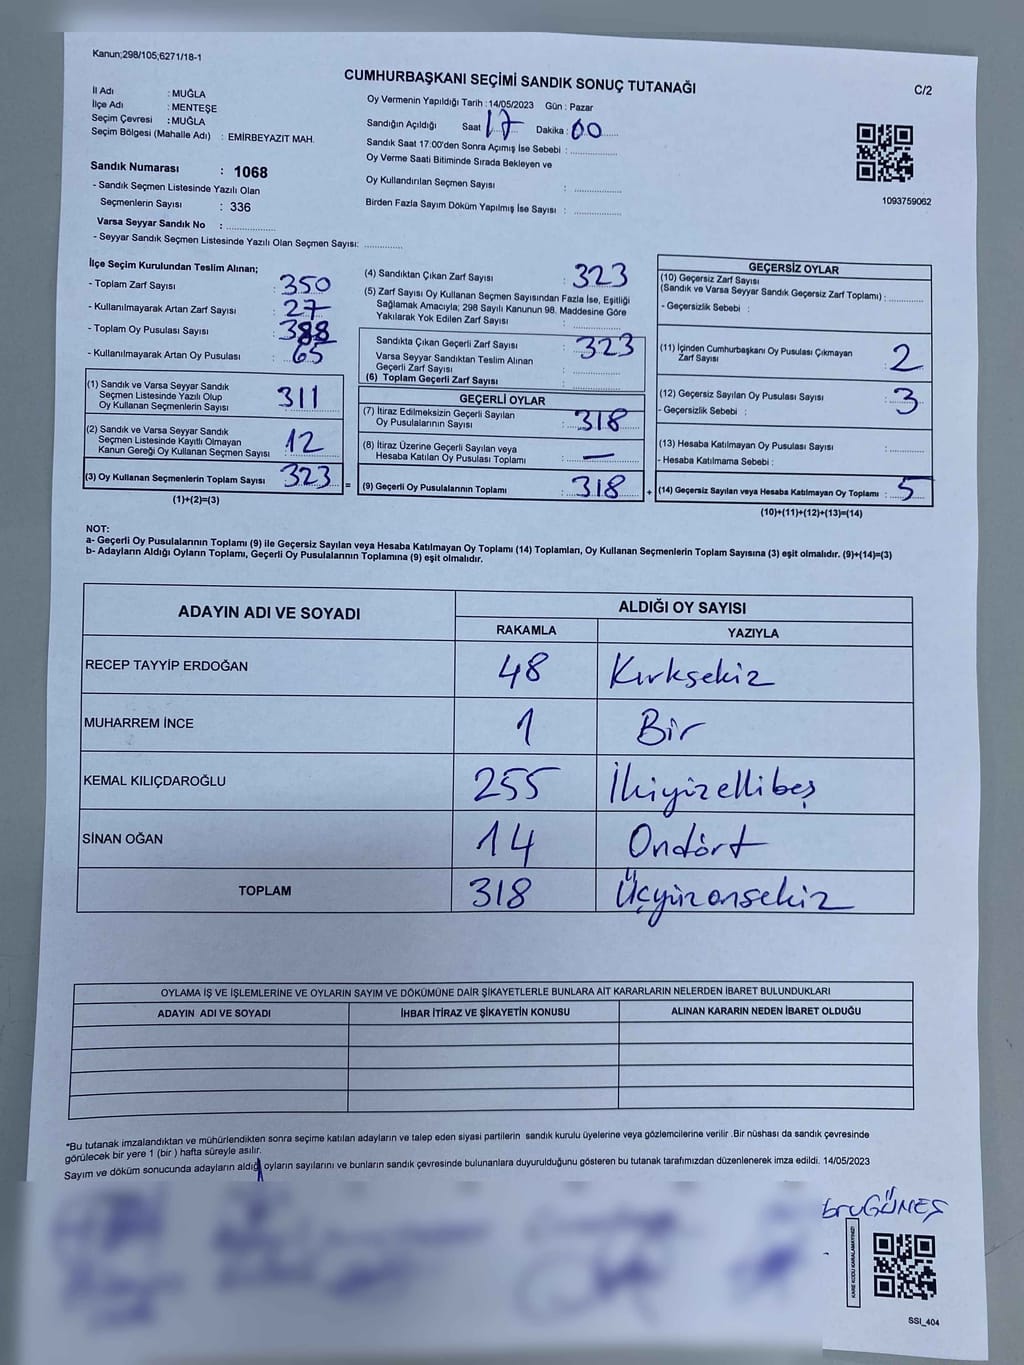 Kanun;298/105;6271/18-1
CUMHURBAŞKANI SEÇİMİ SANDIK SONUÇ TUTANAĞI
C/2
İl Adı : MUĞLA
İlçe Adı : MENTEŞE
Seçim Çevresi : MUĞLA
Seçim Bölgesi (Mahalle Adı) : EMİRBEYAZIT MAH.
Sandık Numarası : 1068
- Sandık Seçmen Listesinde Yazılı Olan
Seçmenlerin Sayısı : 336
Varsa Seyyar Sandık No : ................
- Seyyar Sandık Seçmen Listesinde Yazılı Olan Seçmen Sayısı: ............
Oy Vermenin Yapıldığı Tarih : 14/05/2023 Gün : Pazar
Sandığın Açıldığı Saat 17 Dakika : 00
Sandık Saat 17:00'den Sonra Açmış İse Sebebi : ................
Oy Verme Saati Bitiminde Sırada Bekleyen ve
Oy Kullandırılan Seçmen Sayısı : ................
Birden Fazla Sayım Döküm Yapılmış İse Sayısı : ................
1093759062
İlçe Seçim Kurulundan Teslim Alınan;
- Toplam Zarf Sayısı : 350
- Kullanılmayarak Artan Zarf Sayısı : 27
- Toplam Oy Pusulası Sayısı : 388
- Kullanılmayarak Artan Oy Pusulası : 65
(1) Sandık ve Varsa Seyyar Sandık
Seçmen Listesinde Yazılı Olup
Oy Kullanan Seçmenlerin Sayısı : 311
(2) Sandık ve Varsa Seyyar Sandık
Seçmen Listesinde Kayıtlı Olmayan
Kanun Gereği Oy Kullanan Seçmen Sayısı : 12
(3) Oy Kullanan Seçmenlerin Toplam Sayısı : 323 =
(1)+(2)=(3)
(4) Sandıktan Çıkan Zarf Sayısı : 323
(5) Zarf Sayısı Oy Kullanan Seçmen Sayısından Fazla İse, Eşitliği
Sağlamak Amacıyla; 298 Sayılı Kanunun 98. Maddesine Göre
Yakılarak Yok Edilen Zarf Sayısı : ................
Sandıkta Çıkan Geçerli Zarf Sayısı : 323
Varsa Seyyar Sandıktan Teslim Alınan
Geçerli Zarf Sayısı : ................
(6) Toplam Geçerli Zarf Sayısı : ................
GEÇERLİ OYLAR
(7) İtiraz Edilmeksizin Geçerli Sayılan
Oy Pusulalarının Sayısı : 318
(8) İtiraz Üzerine Geçerli Sayılan veya
Hesaba Katılan Oy Pusulası Toplamı : —
(9) Geçerli Oy Pusulalarının Toplamı : 318 +
GEÇERSİZ OYLAR
(10) Geçersiz Zarf Sayısı
(Sandık ve Varsa Seyyar Sandık Geçersiz Zarf Toplamı) : ............
- Geçersizlik Sebebi :
(11) İçinden Cumhurbaşkanı Oy Pusulası Çıkmayan
Zarf Sayısı : 2
(12) Geçersiz Sayılan Oy Pusulası Sayısı : 3
- Geçersizlik Sebebi :
(13) Hesaba Katılmayan Oy Pusulası Sayısı : ............
- Hesaba Katılmama Sebebi :
(14) Geçersiz Sayılan veya Hesaba Katılmayan Oy Toplamı : 5
(10)+(11)+(12)+(13)=(14)
NOT:
a- Geçerli Oy Pusulalarının Toplamı (9) ile Geçersiz Sayılan veya Hesaba Katılmayan Oy Toplamı (14) Toplamları, Oy Kullanan Seçmenlerin Toplam Sayısına (3) eşit olmalıdır. (9)+(14)=(3)
b- Adayların Aldığı Oyların Toplamı, Geçerli Oy Pusulalarının Toplamına (9) eşit olmalıdır.
ADAYIN ADI VE SOYADI ALDIĞI OY SAYISI
RAKAMLA YAZIYLA
RECEP TAYYİP ERDOĞAN 48 Kırksekiz
MUHARREM İNCE 1 Bir
KEMAL KILIÇDAROĞLU 255 İkiyizellibeş
SİNAN OĞAN 14 Ondört
TOPLAM 318 Üçyüzonsekiz
OYLAMA İŞ VE İŞLEMLERİNE VE OYLARIN SAYIM VE DÖKÜMÜNE DAİR ŞİKAYETLERLE BUNLARA AİT KARARLARIN NELERDEN İBARET BULUNDUKLARI
ADAYIN ADI VE SOYADI İHBAR İTİRAZ VE ŞİKAYETİN KONUSU ALINAN KARARIN NEDEN İBARET OLDUĞU
*Bu tutanak imzalandıktan ve mühürlendikten sonra seçime katılan adayların ve talep eden siyasi partilerin sandık kurulu üyelerine veya gözlemcilerine verilir .Bir nüshası da sandık çevresinde
görülecek bir yere 1 (bir ) hafta süreyle asılır.
Sayım ve döküm sonucunda adayların aldığı oyların sayılarını ve bunların sandık çevresinde bulunanlara duyurulduğunu gösteren bu tutanak tarafımızdan düzenlenerek imza edildi. 14/05/2023
GÜNEŞ
KARE KODU KARALAMAYINIZ!
SSI_404